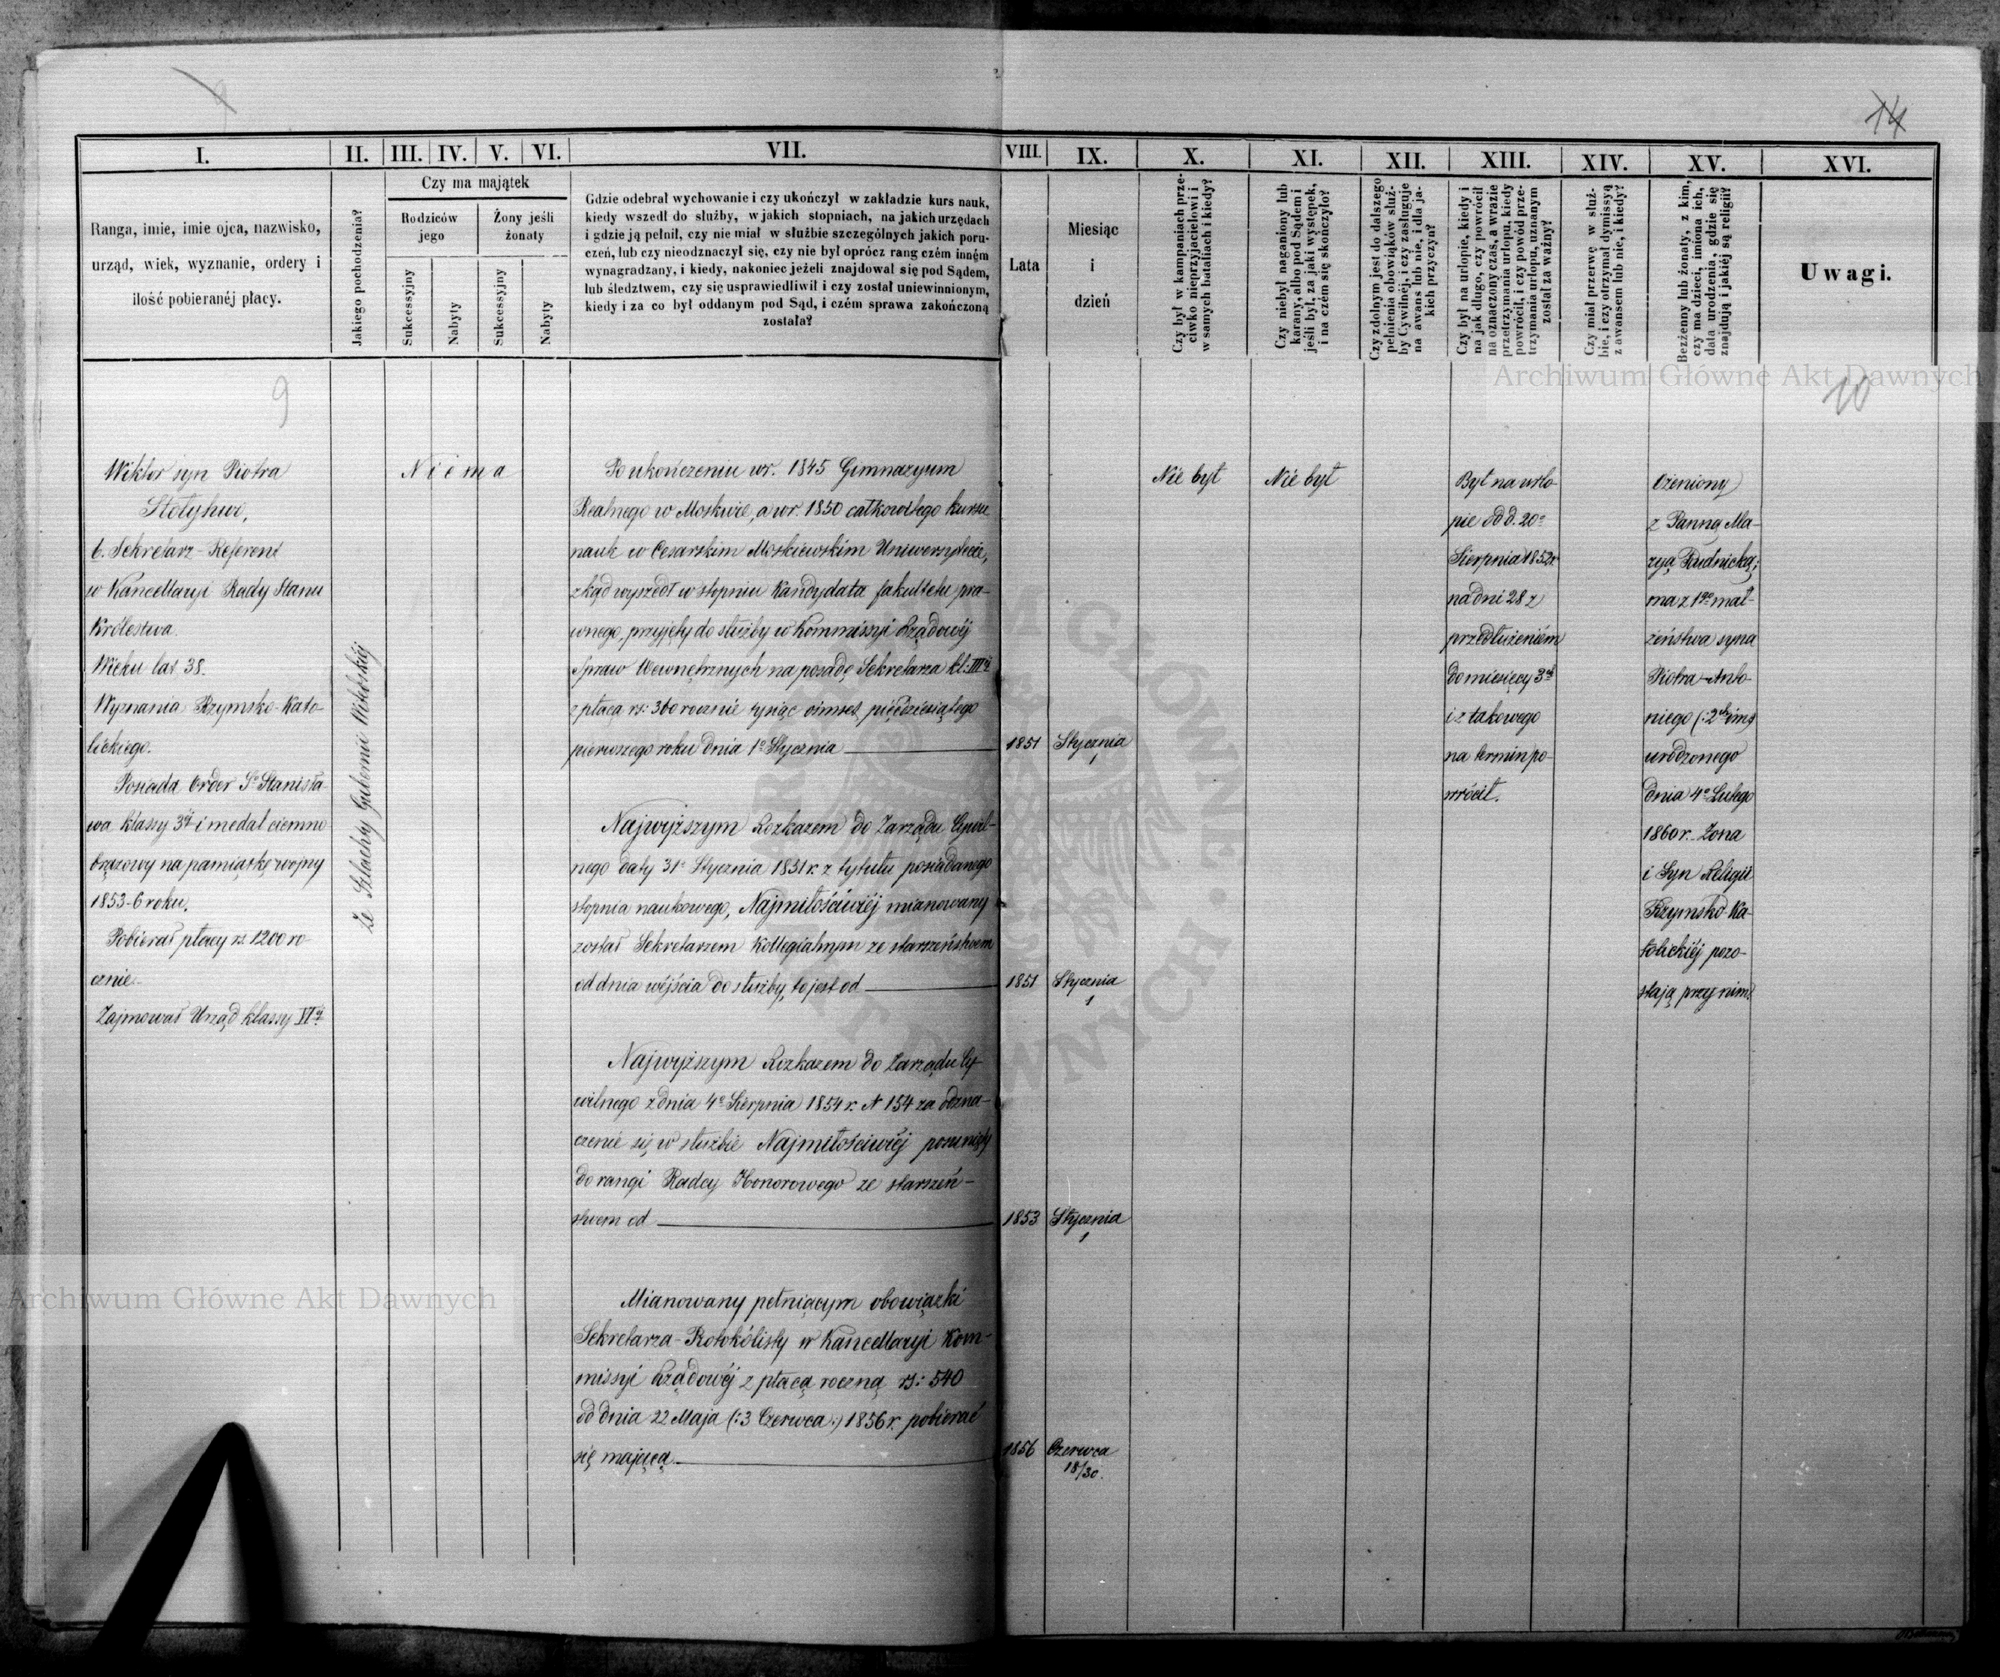 9
14
I.
II.
III.
IV.
V.
VI.
VII.
VIII.
IX.
X.
XI.
XII.
XIII.
XIV.
XV.
XVI.
Ranga, imie, imie ojca, nazwisko,
urząd, wiek, wyznanie, ordery i
ilość pobieranéj płacy.
Jakiego pochodzenia?
Czy ma majątek
Rodziców
jego
Żony jeśli
żonaty
Sukcessyjny
Nabyty
Sukcessyjny
Nabyty
Gdzie odebrał wychowanie i czy ukończył w zakładzie kurs nauk,
kiedy wszedł do służby, w jakich stopniach, na jakich urzędach
i gdzie ją pełnił, czy nie miał w służbie szczególnych jakich poru-
czeń, lub czy nieodznaczył się, czy nie był oprócz rang czém inném
wynagradzany, i kiedy, nakoniec jeżeli znajdował się pod Sądem,
lub śledztwem, czy się usprawiedliwił i czy został uniewinnionym,
kiedy i za co był oddanym pod Sąd, i czém sprawa zakończoną
została?
Lata
Miesiąc
i
dzień
Czy był w kampaniach prze-
ciwko nieprzyjacielowi i
w samych bataliach i kiedy?
Czy niebył naganiony lub
karany, albo pod Sądem i
jeśli był, za jaki występek,
i na czém się skończyło?
Czy zdolnym jest do dalszego
pełnienia obowiąków służ-
by Cywilnéj, i czy zasługuje
na awans lub nie, i dla ja-
kich przyczyn?
Czy był na urlopie, kiedy i
na jak długo, czy powrócił
na oznaczony czas, a w razie
przetrzymania urlopu, kiedy
powrócił, i czy powód prze-
trzymania urlopu, uznanym
został za ważny?
Czy miał przerwę w służ-
bie, i czy otrzymał dymissyą
z awansem lub nie, i kiedy?
Bezżenny lub żonaty, z kim,
czy ma dzieci, imiona ich,
data urodzenia, gdzie się
znajdują i jakiéj są religii?
Uwagi.
Archiwum Główne Akt Dawnych
9
10
Wiktor syn Piotra
Stołyhwo,
b. Sekretarz-Referent
w Kancellaryi Rady Stanu
Królestwa.
Wieku lat 38.
Wyznania Rzymsko-Kato-
lickiego.
Posiada Order Sgo Stanisła-
wa klassy 3éj i medal ciemno-
brązowy na pamiątkę wojny
1853-6 roku.
Pobierał płacy rs. 1200 ro-
cznie.
Zajmował Urząd klassy VIéj
Ze Szlachty Gubernii Witebskiéj
Niema
Po ukończeniu w r. 1845 Gimnazyum
Realnego w Moskwie, a w r 1850 całkowitego kursu
nauk w Cesarskim Moskiewskim Uniwersytecie,
zkąd wyszedł w stopniu Kandydata fakultetu pra-
wnego, przyjęty do służby w Kommissyi Rządowéj
Spraw Wewnętrznych na posadę Sekretarza kl: IIIéj
z płacą rs: 360 rocznie tysiąc ośmset pięćdziesiątego
pierwszego roku dnia 1o Stycznia
1851 Stycznia
1
Najwyższym Rozkazem do Zarządu Cywil-
nego daty 31o Stycznia 1851 r. z tytułu posiadanego
stopnia naukowego, Najmiłościwiéj mianowany
został Sekretarzem Kollegialnym ze starszeństwem
od dnia wéjścia do służby, to jest od
1851 Stycznia
1
Najwyższym Rozkazem do Zarządu Cy-
wilnego z dnia 4o Sierpnia 1854 r. N 154 za odzna-
czenie się w służbie Najmiłościwiéj posunięty
do rangi Radcy Honorowego ze starszeń-
stwem od
1853 Stycznia
1
Mianowany pełniącym obowiązki
Sekretarza-Protokólisty w Kancellaryi Kom-
missyi Rządowéj z płacą roczną rs: 540
od dnia 22 Maja (:3 Czerwca:) 1856 r. pobierać
się mającą
1856 Czerwca
18/30.
Nie był
Nie był
Był na urlo-
pie od d. 20o
Sierpnia 1852 r.
na dni 28 z
przedłużeniem
do miesięcy 3ch
i z takowego
na termin po-
wrócił.
Ożeniony
z Panną Ma-
ryą Rudnicką;
ma z 1go mał-
żeństwa syna
Piotra-Anto-
niego (:2ch im:)
urodzonego
dnia 4o Lutego
1860 r. Żona
i Syn Religii
Rzymsko-Ka-
tolickiéj pozo-
stają przy nim.
Archiwum Główne Akt Dawnych